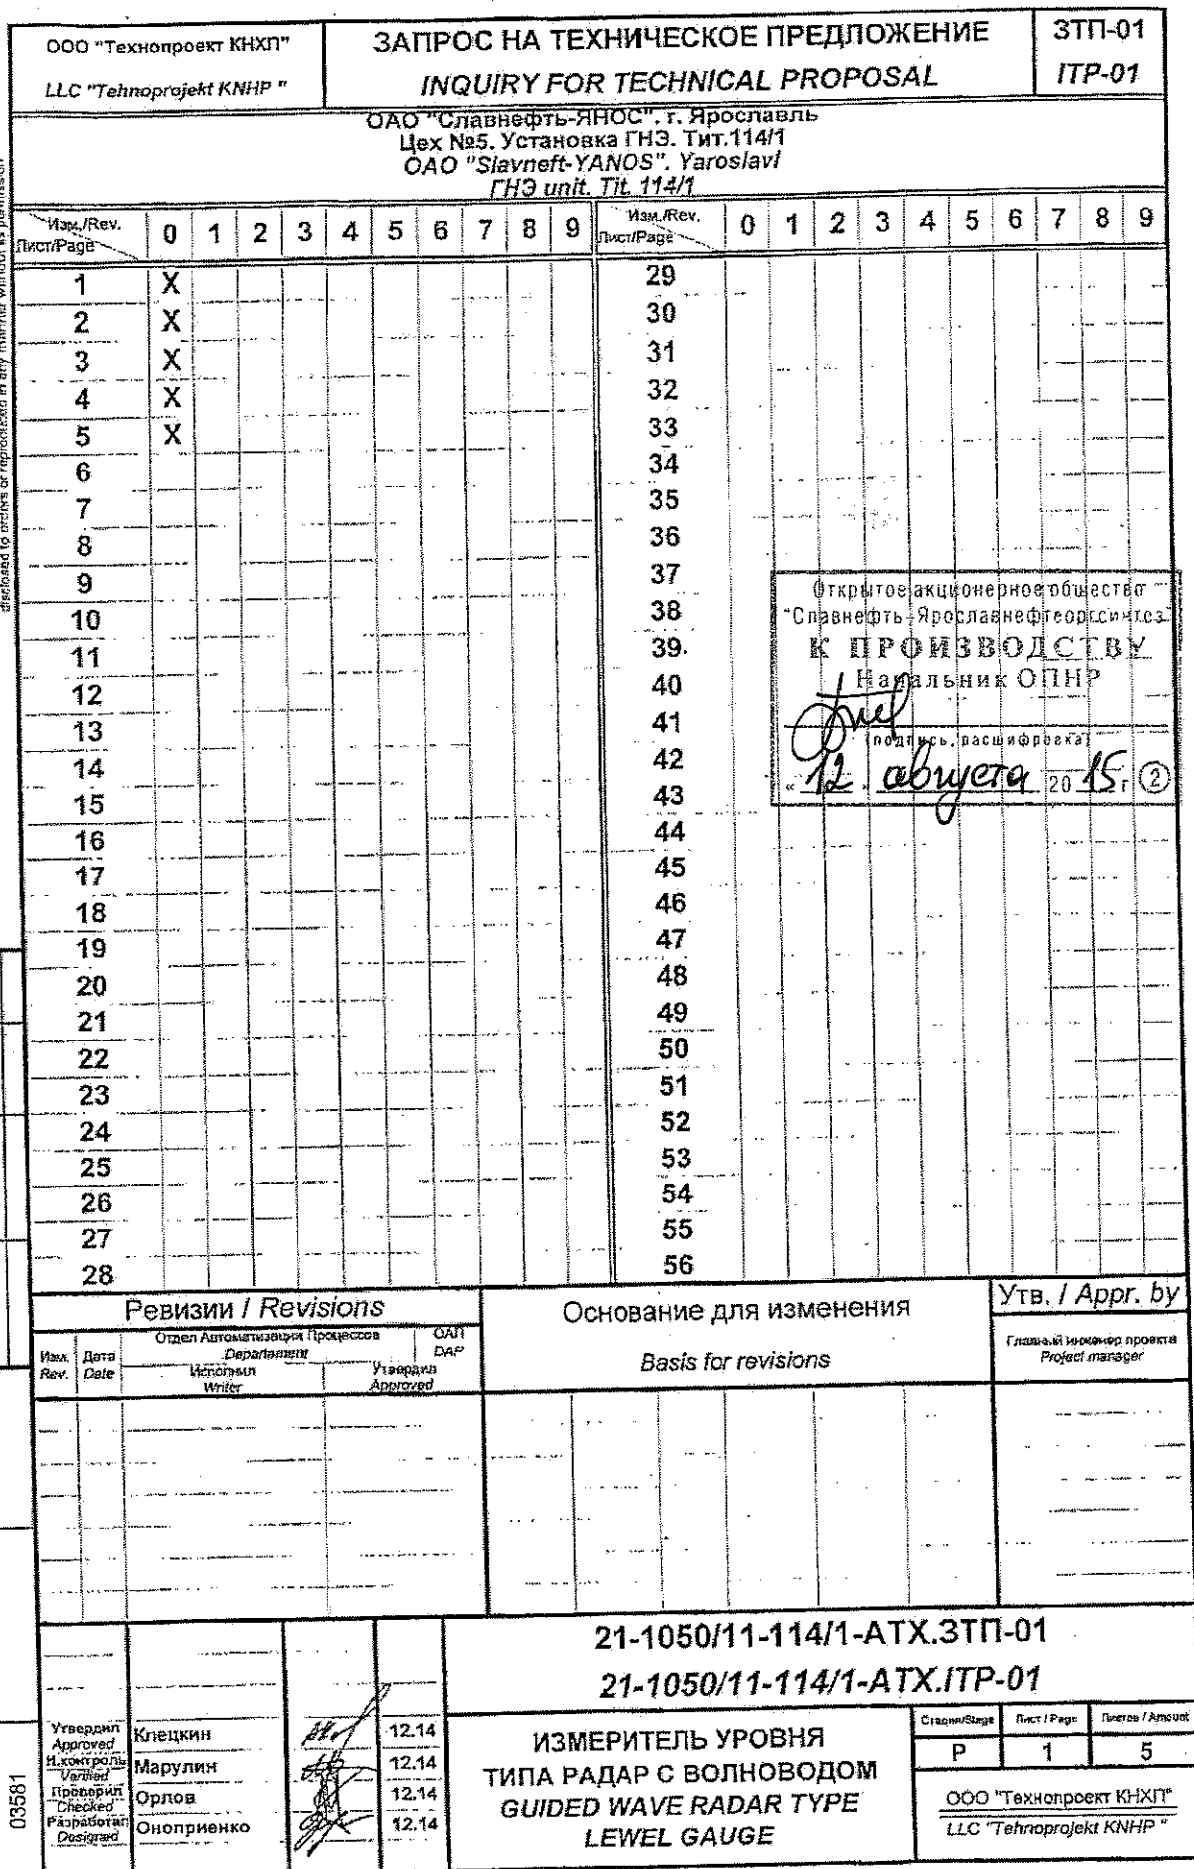 ООО "Технопроект КНХП"
LLC "Tehnoprojekt KNHP "
ЗАПРОС НА ТЕХНИЧЕСКОЕ ПРЕДЛОЖЕНИЕ
INQUIRY FOR TECHNICAL PROPOSAL
ЗТП-01
ITP-01
ОАО "Славнефть-ЯНОС", г. Ярославль
Цех №5. Установка ГНЭ. Тит.114/1
ОАО "Slavneft-YANOS", Yaroslavl
ГНЭ unit. Tit. 114/1
Изм./Rev. 0 1 2 3 4 5 6 7 8 9 Изм./Rev. 0 1 2 3 4 5 6 7 8 9
Лист/Page Лист/Page
1 X 29
2 X 30
3 X 31
4 X 32
5 X 33
6 34
7 35
8 36
9 37
10 38
11 39
12 40
13 41
14 42
15 43
16 44
17 45
18 46
19 47
20 48
21 49
22 50
23 51
24 52
25 53
26 54
27 55
28 56
Открытое акционерное общество
"Славнефть-Ярославнефтеоргсинтез"
К ПРОИЗВОДСТВУ
Начальник ОПНР
(подпись, расшифровка)
"12" августа 2015г ②
Ревизии / Revisions
Изм. Rev.
Дата Date
Отдел Автоматизации Процессов
Departament
ОАП
DAP
Исполнил
Writer
Утвердил
Approved
Основание для изменения
Basis for revisions
Утв. / Appr. by
Главный инженер проекта
Project manager
21-1050/11-114/1-АТХ.ЗТП-01
21-1050/11-114/1-ATX.ITP-01
Утвердил Approved Клецкин 12.14
Н.контроль Verified Марулин 12.14
Проверил Checked Орлов 12.14
Разработал Designed Оноприенко 12.14
ИЗМЕРИТЕЛЬ УРОВНЯ
ТИПА РАДАР С ВОЛНОВОДОМ
GUIDED WAVE RADAR TYPE
LEWEL GAUGE
Стадия/Stage Лист / Page Листов / Amount
Р 1 5
ООО "Технопроект КНХП"
LLC "Tehnoprojekt KNHP "
03581